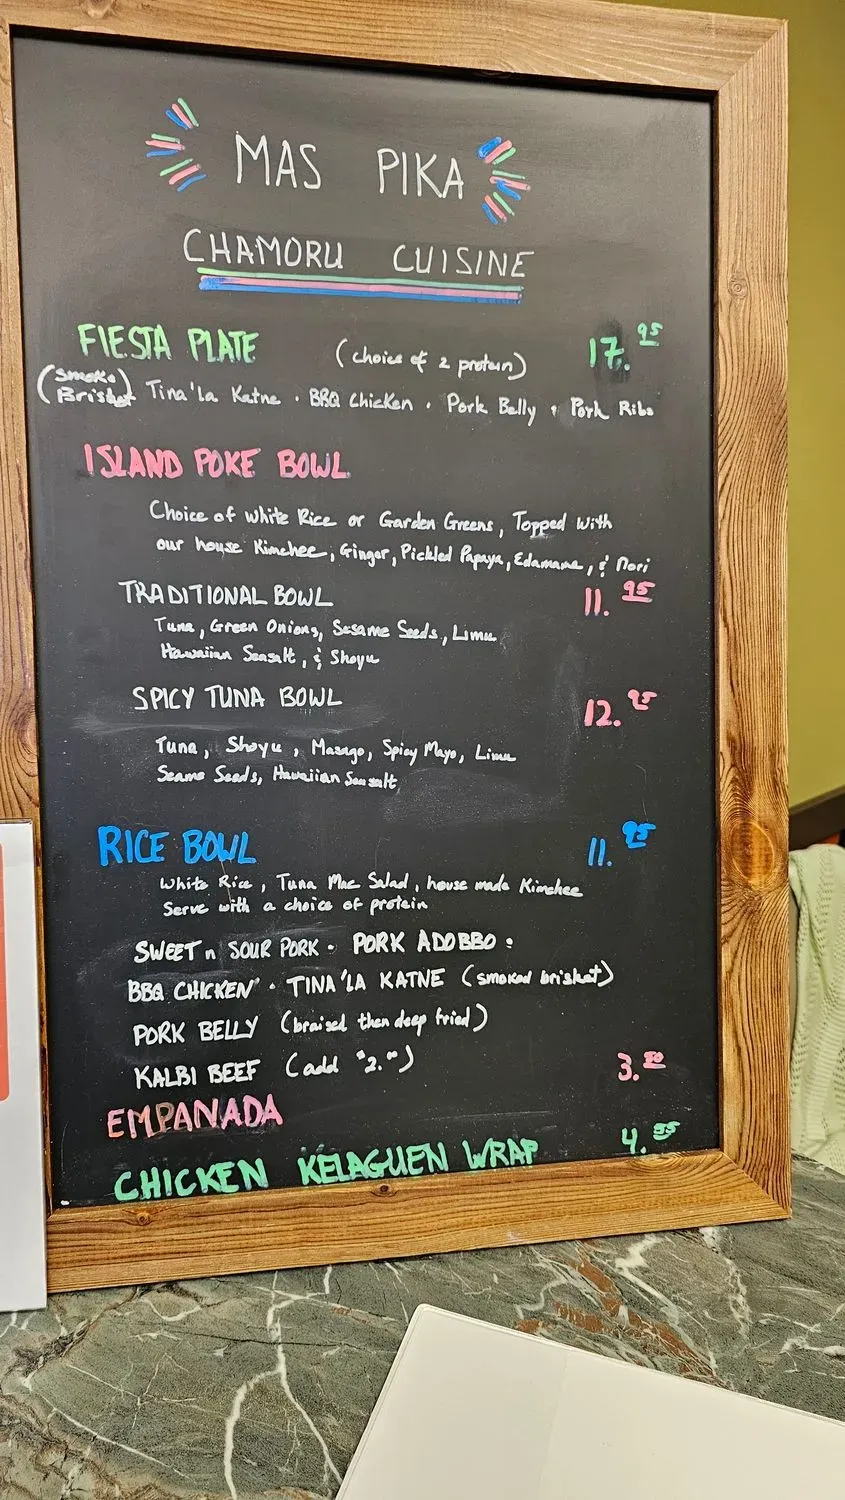 MAS PIKA
CHAMORU CUISINE
FIESTA PLATE (choice of 2 protein) 17.95
(Smoke Brisket) Tina'la Katne · BBQ Chicken · Pork Belly · Pork Ribs
ISLAND POKE BOWL
Choice of White Rice or Garden Greens, Topped with
our house Kimchee, Ginger, Pickled Papaya, Edamame, & Nori
TRADITIONAL BOWL 11.95
Tuna, Green Onions, Sesame Seeds, Limu
Hawaiian Seasalt, & Shoyu
SPICY TUNA BOWL 12.95
Tuna, Shoyu, Masago, Spicy Mayo, Limu
Seame Seeds, Hawaiian Seasalt
RICE BOWL 11.95
White Rice, Tuna Mac Salad, house made Kimchee
Serve with a choice of protein
SWEET n SOUR PORK · PORK ADOBBO ·
BBQ CHICKEN · TINA'LA KATNE (smoked brisket)
PORK BELLY (braised then deep fried)
KALBI BEEF (add $2.00)
EMPANADA 3.50
CHICKEN KELAGUEN WRAP 4.95